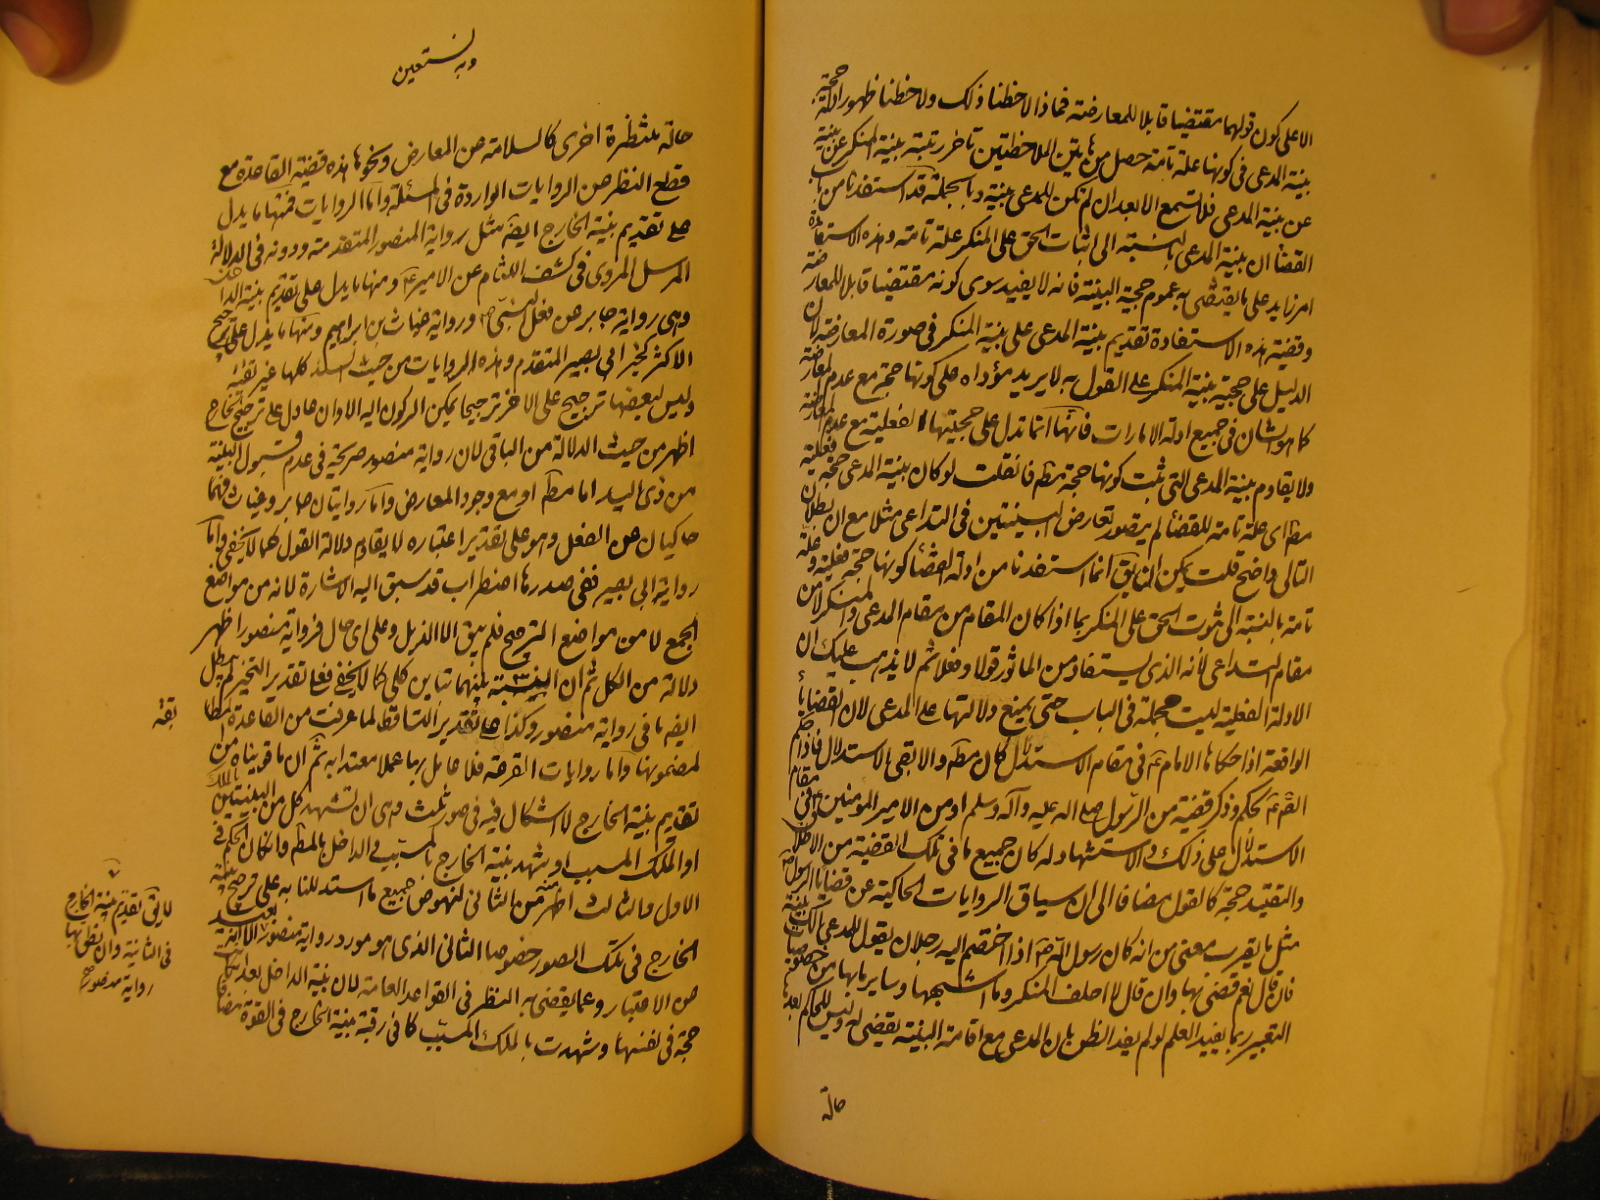 الا على كون قولهما مقتضيا قابلا للمعارضة فماذا لاحظنا ذلك ولاحظنا ظهور ادلة حجية
بينة المدعى فى كونها علة تامة حصل من هاتين الملاحظتين تاخر رتبة بينة المنكر عن بينة
عن بينة المدعى فلا تسمع الا بعد ان لم تكن للمدعى بينة وبالجملة قد استفدنا من باب
القضا ان بينة المدعى بالنسبة الى اثبات الحق على المنكر علة تامة وهذه الاستفادة
امر زايد على ما يقتضى به عموم حجية البينة فانه لا يفيد سوى كونه مقتضيا قابلا للمعارضة
وقضية هذه الاستفادة تقديم بينة المدعى على بينة المنكر فى صورة المعارضة لان
الدليل على حجية بينة المنكر على القول به لا يزيد مؤداه على كونها حجة مع عدم المعارضة
كما هو الشان فى جميع ادلة الامارات فانها انما تدل على حجيتها الفعلية مع عدم المعارضة
ولا يقاوم بينة المدعى التى ثبت كونها حجة مطم فان قلت لو كان بينة المدعى حجة فعلية
مطم اى علة تامة للقضا لم يتصور تعارض البينتين فى التداعى مثلا مع ان بطلان
التالى واضح قلت يمكن ان يق انما استفدنا من ادلة القضا كونها حجة فعلية وعلة
تامة بالنسبة الى ثبوت الحق على المنكر بما اذا كان المقام من مقام المدعى والمنكر لا من
مقام التداعى لانه الذى يستفاد من الماثور قولا وفعلا ثم لا يذهب عليك ان
الادلة الفعلية ليست مجملة فى الباب حتى يمنع دلالتها على المدعى لان القضايا
الواقعة اذا حكاها الامام ع فى مقام الاستدلال كان مطم والا لا بقى الاستدلال فاذا حكم
بحكم وذكر قضية من الرسول صلى اله عليه وآله وسلم او من الامير المؤمنين ع فى مقام
الاستدلال على ذلك والاستشهاد له كان جميع ما فى تلك القضية من الاطلاق
والتقييد حجة كالقول مضافا الى ان سياق الروايات الحاكية عن قضايا الرسول ص
مثل ما يقرب معنى من انه كان رسول الله ص اذا اختصم اليه رجلان يقول للمدعى الك بينة
فان قال نعم قضى بها وان قال لا احلف المنكر وما اشبهها وسايرها من خصوصيات
التعبير ربما يفيد العلم لو لم يفد الظن بان المدعى مع اقامة البينة يقضى له وليس للحاكم بعدها
حالة
وبه نستعين
حالة منتظرة اخرى كالسلامة من المعارض ونحوها هذه قضية القاعدة مع
قطع النظر عن الروايات الواردة فى المسئلة واما الروايات فمنها ما يدل
على تقديم بينة الخارج ايضا مثل رواية المنصور المتقدمة ودونه فى الدلالة
المرسل المروى فى كشف اللثام عن الامير ع ومنها ما يدل على تقديم بينة الداخل
وهى رواية جابر عن فعل النبى ص ورواية غياث بن ابراهيم ومنها ما يدل على ترجيح
الاكثر كخبر ابى بصير المتقدم وهذه الروايات من حيث السند كلها غير نقية
وليس لبعضها ترجيح على الاخر ترجيحا يمكن الركون اليه الا ان ما دل على ترجيح الخارج
اظهر من حيث الدلالة من الباقى لان رواية منصور صريحة فى عدم قبول البينة
من ذى اليد اما مطم او مع وجود المعارض واما روايتان جابر وغياث فهما
حاكيان عن الفعل وهو على تقدير اعتباره لا يقاوم دلالة القول كما لا يخفى واما
رواية ابى بصير ففى صدرها اضطراب قد سبق اليه الاشارة لانه من مواضع
الجمع لا من مواضع الترجيح فلم يبق الا الذيل وعلى اى حال فرواية منصور اظهر
دلالة من الكل ثم ان النسبة بينهما تباين كلى كما لا يخفى فعلى تقدير التخيير لم يبطل
ايضا ما فى رواية منصور وكذا على تقدير التساقط لما عرفت من القاعدة المطابقة
لمضمونها واما روايات القرعة فلا عامل بها عملا معتدا به ثم ان ما قويناه من
تقديم بينة الخارج لا اشكال فيه فى صور ثلث وهى ان تشهد كل من البينتين بالملك
او الملك المسبب او تشهد بينة الخارج بالمسبب والداخل بالمطلم وان كان الحكم فى
الاول والثالث اظهر منه من الثانى لنهوض جميع ما استدللنا به على ترجيح بينة
الخارج فى تلك الصور خصوصا الثانى الذى هو مورد رواية منصور الا انه بعيد
عن الاعتبار وعما يقضى به النظر فى القواعد العامة لان بينة الداخل بعد ان كانت
حجة فى نفسها وشهدت بالملك المسبب كافى رقبة بينة الخارج فى القوة
بقة
لا يق بتقديم بينة الخارج
فى الثانية وان نطق بها
رواية منصور صح